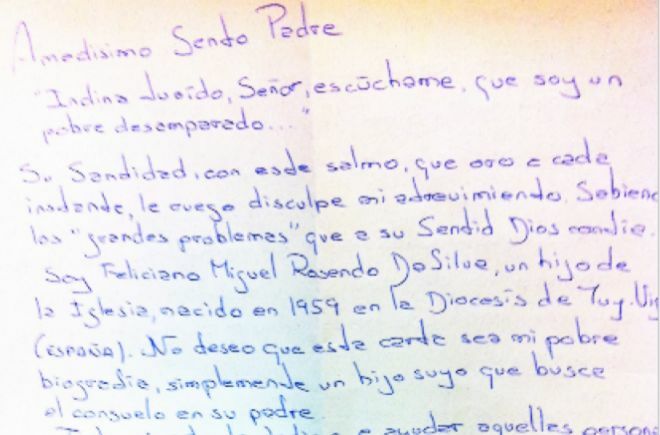 Amadisimo Sento Padre
"Indina tu oido, Señor, escúchame, que soy un
pobre desemparado..."
Su Santidad, con este salmo, que oro a cada
instante, le ruego disculpe mi atrevimiento. Sabiend
los "grandes problemas" que a su Santid Dios confia.
Soy Feliciano Miguel Rosendo DaSilva, un hijo de
la Iglesia, nacido en 1959 en la Diocesis de Tuy. Vig
(ESPAÑA). No deseo que esta carta sea mi pobre
biografia, simplemente un hijo suyo que busca
el consuelo en su padre.
a ayudar aquellas persona